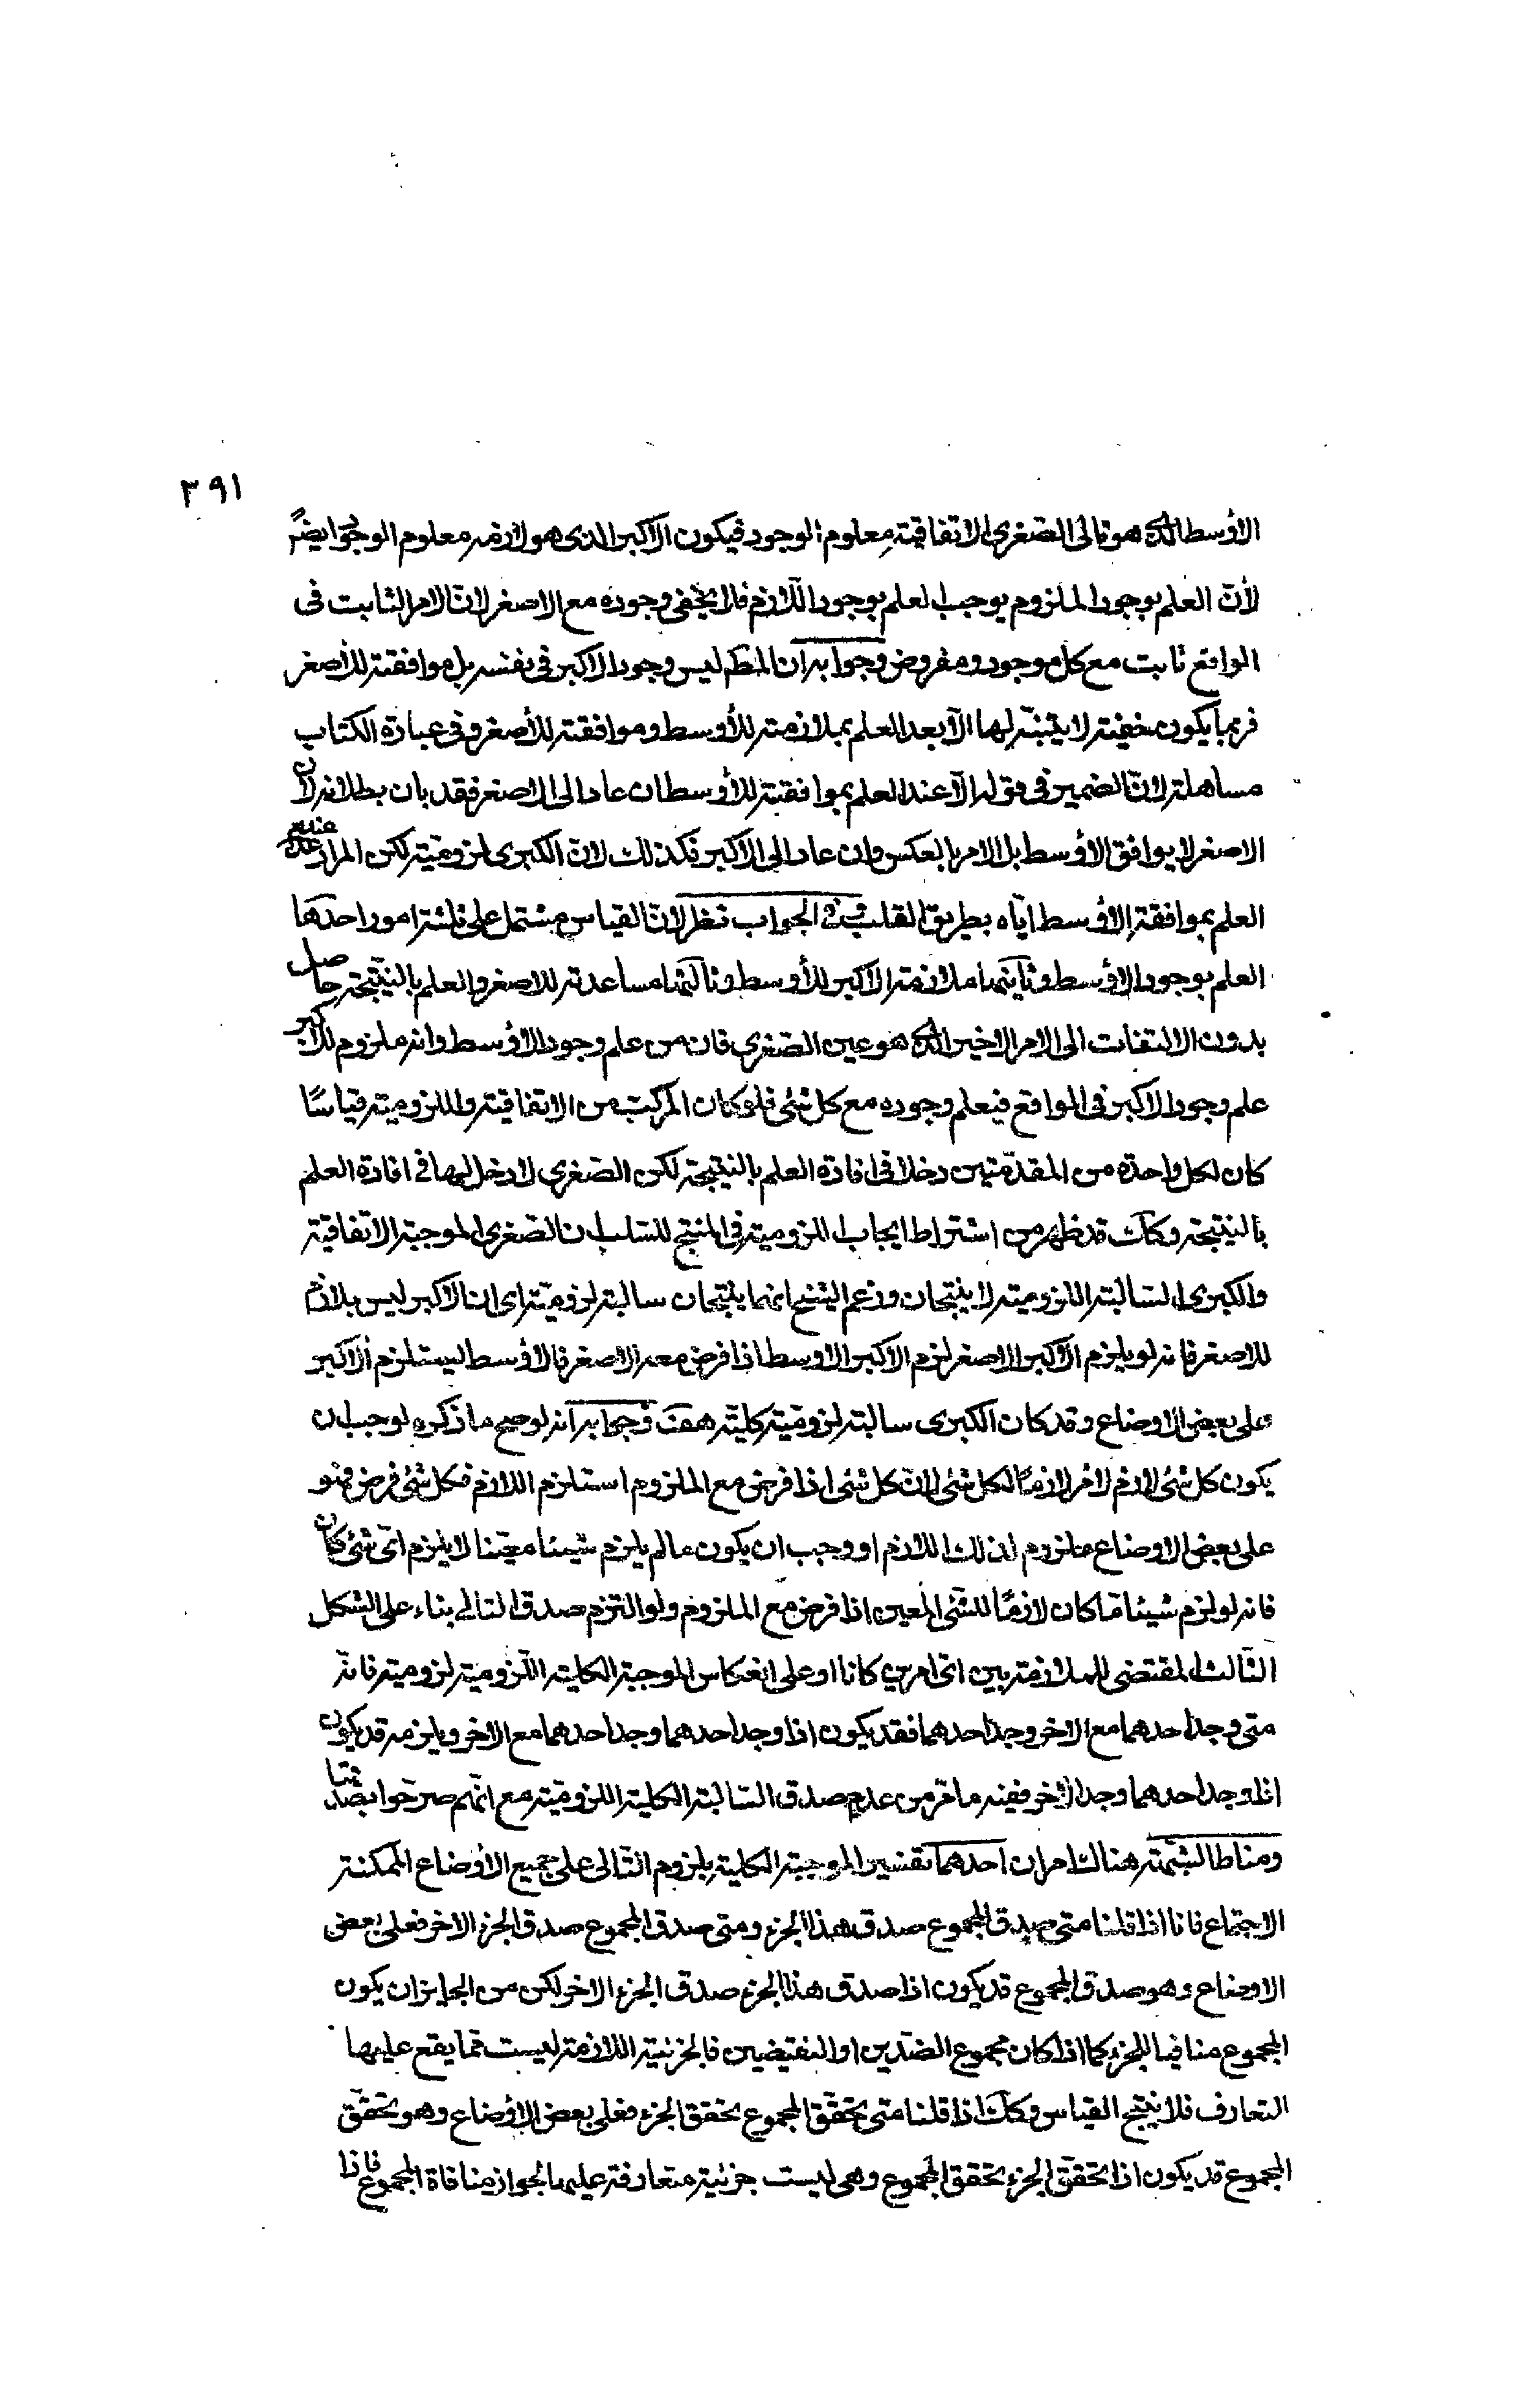 ٣٩١
الأوسط الذى هو تالى الصّغرى الاتفاقية معلوم الوجود فيكون الأكبر الذى هو لازمه معلوم الوجود ايضًا
لأنّ العلم بوجود الملزوم يوجب العلم بوجود اللّازم فلا يخفى وجوده مع الاصغر لانّ الامر الثابت فى
الواقع ثابت مع كل موجود ومفروض وجوابه ان المطّ ليس وجود الاكبر فى نفسه بل موافقته للأصغر
فربما يكون خفيّة لا يتنبّه لها الّا بعد العلم بملازمته للأوسط وموافقته للأصغر وفى عبارة الكتاب
مساهلة لانّ الضمير فى قوله الّا عند العلم بموافقته للأوسط ان عاد الى الاصغر فقد بان بطلانه لان
الاصغر لا يوافق الأوسط بل الامر بالعكس وان عاد الى الأكبر فكذلك لانّ الكبرى لزوميّة لكن المراد عنده
العلم بموافقة الأوسط ايّاه بطريق القلب وفى الجواب نظر لانّ القياس مشتمل على ثلثة امور احدها
العلم بوجود الاوسط وثانيهما ملازمة الاكبر للأوسط وثالثهما مساعدته للاصغر والعلم بالنتيجة حاصل
بدون الالتفات الى الامر الاخير الذى هو عين الصّغرى فان من علم وجود الأوسط وانه ملزوم للأكبر
علم وجود الاكبر فى الواقع فيعلم وجوده مع كل شئ فلو كان المركّب من الاتفاقية واللزومية قياسًا
كان لكل واحدة من المقدّمتين دخلا فى افادة العلم بالنتيجة لكن الصّغرى لا دخل لها فى افادة العلم
بالنتيجة وكك قد ظهر من اشتراط ايجاب اللزومية فى المنتج للسّلب ان الصّغرى الموجبة الاتفاقية
والكبرى السّالبة اللزومية لا ينتجان وزعم الشّيخ انهما ينتجان سالبة لزوميّة اى ان الاكبر ليس بلازم
للاصغر فانه لو يلزم الأكبر الاصغر لزم الاكبر الاوسط اذا فرض معه الاصغر فالأوسط ليستلزم الأكبر
على بعض الاوضاع وقد كان الكبرى سالبة لزوميّة كليّة هف وجوابه انه لو صح ما ذكره لوجب ان
يكون كل شئ لازم لامر لازمًا لكل شئ لانّ كل شئ اذا فرض مع الملزوم استلزم اللازم فكل شئ فرض فهو
على بعض الاوضاع ملزوم لذلك اللازم او وجب ان يكون ما لم يلزم شيئا معيّنا لا يلزم اىّ شئ كان
فانه لو لزم شيئا ما كان لازمًا للشّئ المعين اذا فرض مع الملزوم ولو التزم صدق التالى بناء على الشكل
الثّالث المقتضى للملازمة بين اىّ امرين كانا او على انعكاس الموجبة الكلية اللّزومية لزومية فانّه
متى وجد احدهما مع الاخر وجد احدهما فقد يكون اذا وجد احدهما وجد احدهما مع الاخر ويلزمه قد يكون
اذا وجد احدهما وجد الاخر ففيه ما مرّ من عدم صدق السّالبة الكلية اللزوميّة مع انّهم صرّحوا بصدقها
ومناط الشّبهة هناك امران احدهما تفسير الموجبة الكلية بلزوم التّالى على جميع الأوضاع الممكنة
الاجتماع فانا اذا قلنا متى صدق المجموع صدق هذا الجزء ومتى صدق المجموع صدق الجزء الاخر فعلى بعض
الاوضاع وهو صدق المجموع قد يكون اذا صدق هذا الجزء صدق الجزء الاخر لكن من الجايز ان يكون
المجموع منافيا للجزء كما اذا كان مجموع الضدّين او النقيضين فالجزئية اللازمة ليست ممّا يقع عليها
التعارف فلا ينتج القياس وكك اذا قلنا متى تحقّق المجموع تحقق الجزء فعلى بعض الأوضاع وهو تحقّق
المجموع قد يكون اذا تحقّق الجزء تحقق المجموع وهى ليست جزئية متعارفة عليها لجواز منافاة المجموع فاذا